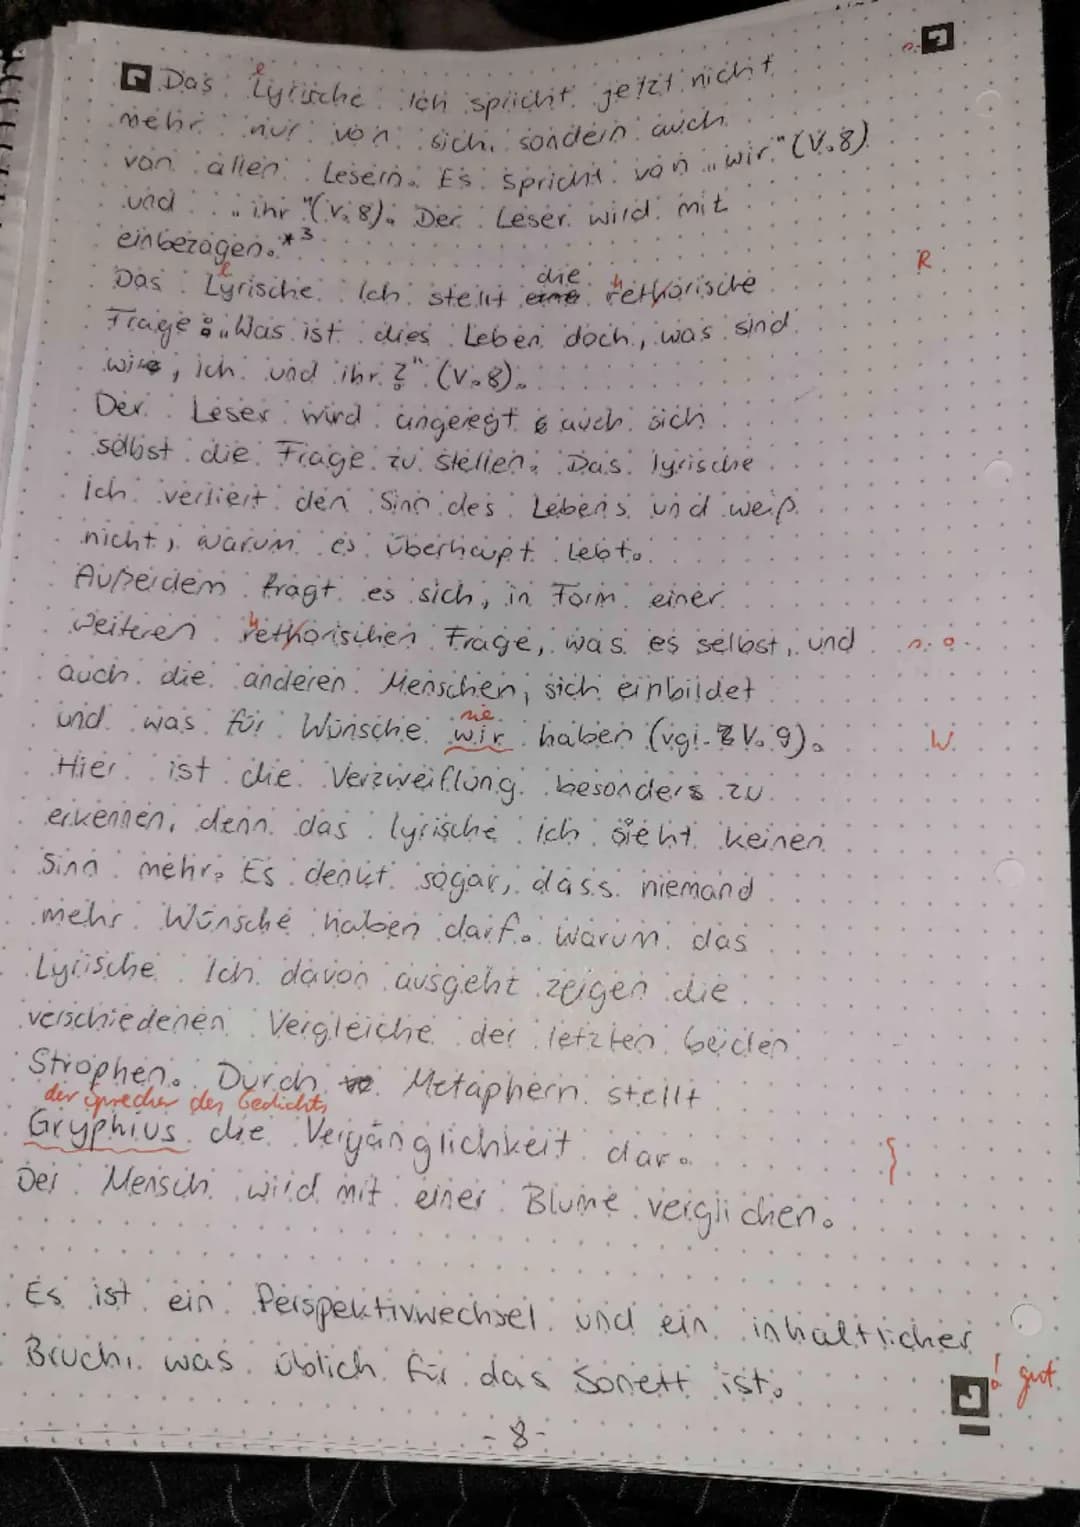 s.
l
Das Lyrische Ich spricht jetzt nicht
mehr nur von sich, sondern auch
von allen Lesern. Es spricht von „wir" (V.8)
und „ihr" (V.8). Der Leser wird mit
einbezogen.*3
l die h R
Das Lyrische Ich stellt eine rethorische
Frage: „Was ist dies Leben doch, was sind
wir, ich und ihr?" (V.8).
Der Leser wird angeregt auch sich
selbst die Frage zu stellen. Das lyrische
Ich verliert den Sinn des Lebens und weiß
nicht, warum es überhaupt lebt.
Außerdem fragt es sich, in Form einer
h
weiteren rethorischen Frage, was es selbst, und s. o.
auch die anderen Menschen, sich einbildet
sie
und was für Wünsche wir haben (vgl. V. 9). W.
Hier ist die Verzweiflung besonders zu
erkennen, denn das lyrische ich sieht keinen
Sinn mehr. Es denkt sogar, dass niemand
mehr Wünsche haben darf. Warum das
Lyrische Ich davon ausgeht zeigen die
verschiedenen Vergleiche der letzten beiden
Strophen. Durch Metaphern stellt
der Sprecher des Gedichts
Gryphius die Vergänglichkeit dar. }
Der Mensch wird mit einer Blume verglichen.
Es ist ein Perspektivwechsel und ein inhaltlicher
Bruch, was üblich für das Sonett ist. ! gut
-8-